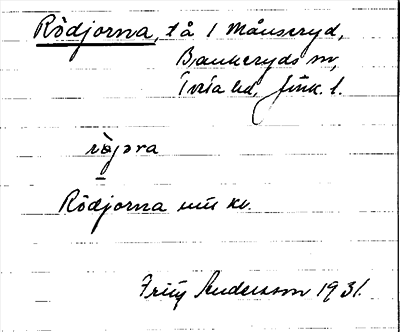 Rödjorna, tå 1 Månseryd,
Bankeryds sn,
Tveta hd, Jönk. l.
rø̀jɔra
Rödjorna
Fritz Andersson 1931.